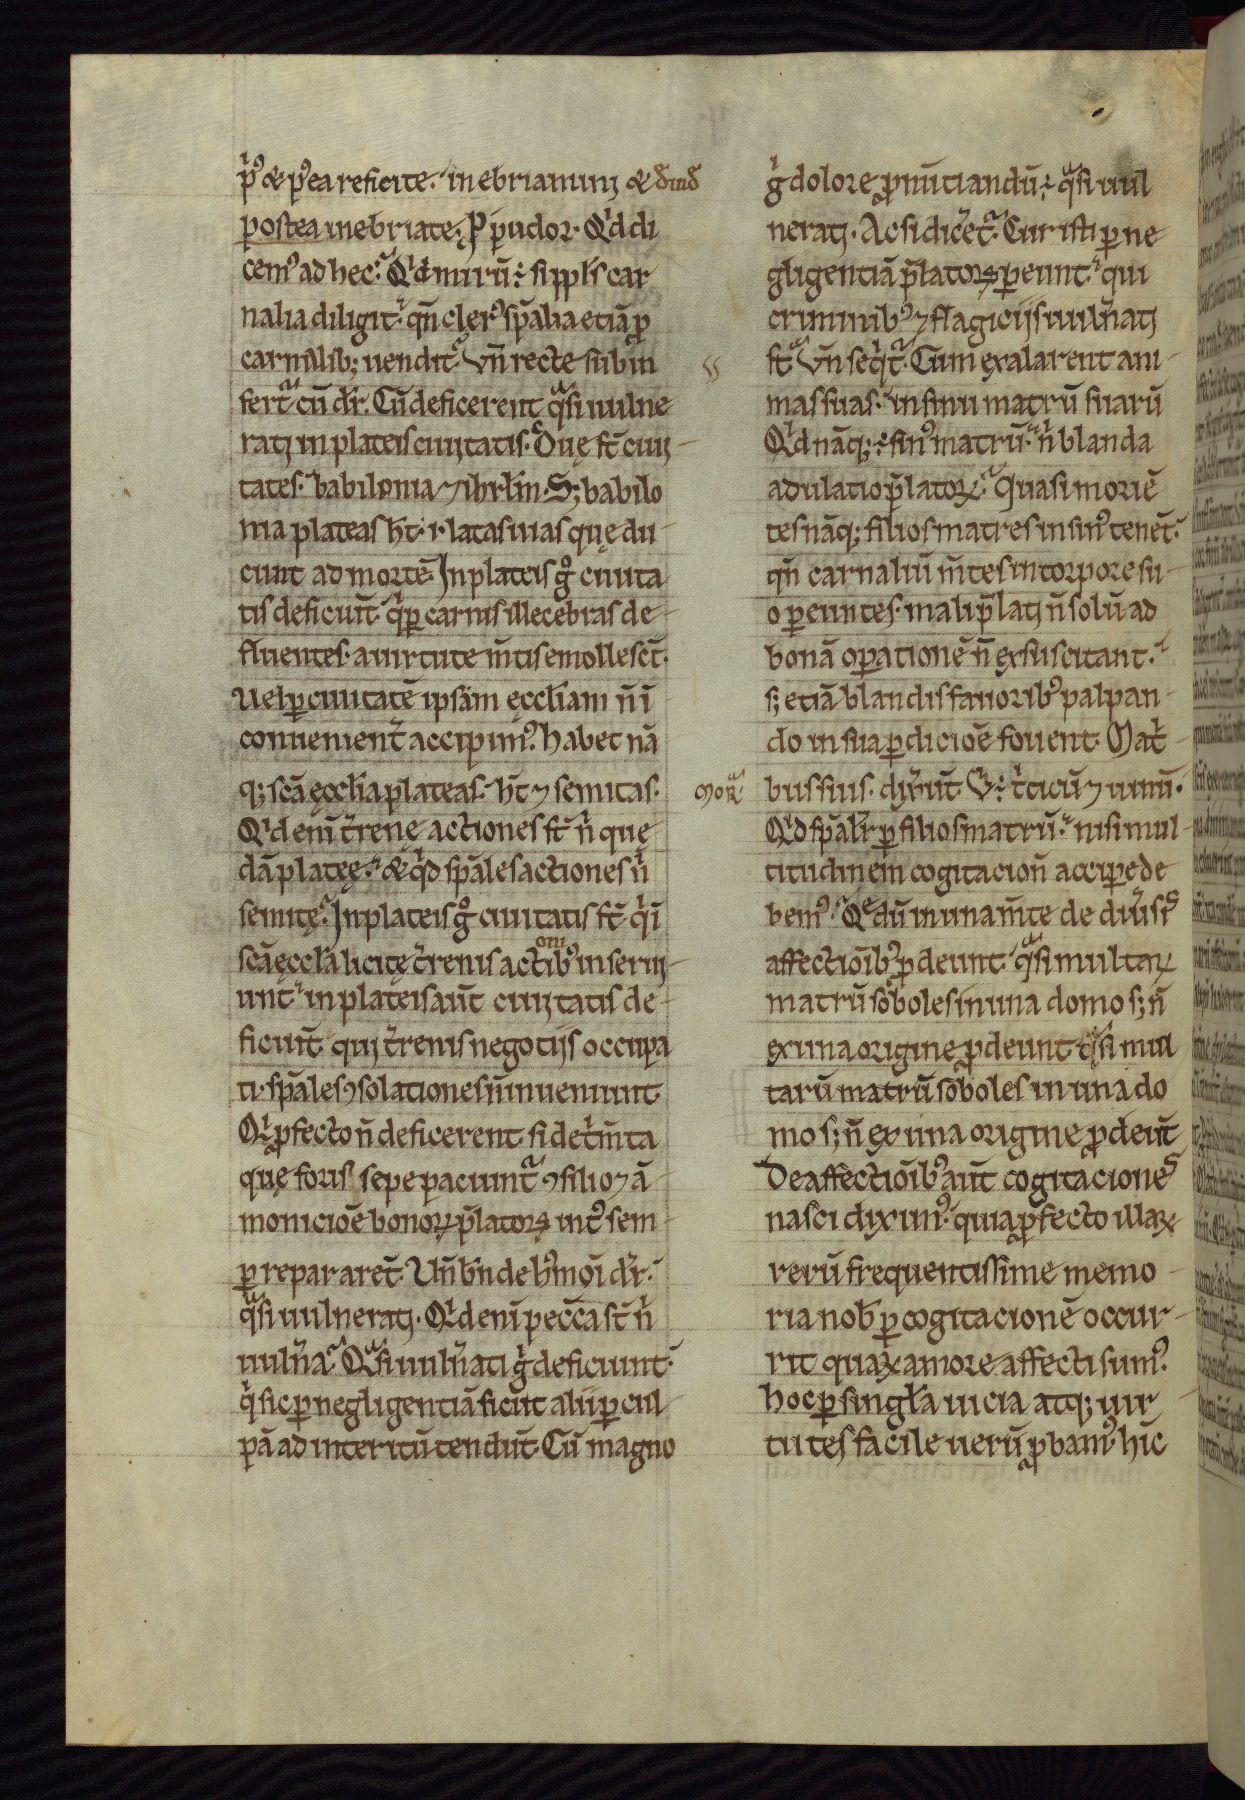 p̓ꝰ ⁊ pꝰea reficite. inebriamini ⁊ dind̄
postea inebriate. P pudor. Qͥd di
cemꝰ ad hec. Qͥd mirū ÷ si ppl̄s car
nalia diligit. qn̄ clerꝰ spāalia etiā ꝓ
carnalib; uendit. Vn̄ recte subin
fert᷑ cū dr̄. Cū deficerent qᷓsi uulne
rati in plateis ciuitatis. Duę st̄ ciui
tates. babilonia ⁊ ihrl̄m. S; babilo
nia plateas ht̄ .i. latas uias quę du
cunt ad mortē. In plateis gͦ ciuita
tis deficiūt. qͥ per carnis illecebras de
fluentes. a uirtute m̄tis emollesc̄t.
Vel per ciuitatē ipsam ęccl̄iam n̄ ī
conuenient̓ accipimꝰ. habet nā
q; scā ęccl̄ia plateas. ht̄ ⁊ semitas.
Qͥd eni t̓renę actiones st̄ nͥ quę
dā plateę. ⁊ qͥd spāales actiones nͥ
semitę. In plateis gͦ ciuitatis st̄ qͥ ī
scā ęccl̄a licitę t̓renis actionibꝰ inserui
unt. in plateis aūt ciuitatis de
ficiūt qui t̓renis negotiis occupa
ti. spāales ꝯsolationes n̄ inueniunt.
Qͥ ꝓfecto n̄ deficerent si det̓m̄ta
quę foris sepe paciunt᷑ ꝯsilio ⁊ ā
monicioē bonoꝝ p̄latoꝝ intꝰ sem
per repararet᷑. Vn̄ bn̄ de hꝰmōi dr̄.
qᷓsi uulnerati. Qͥd eni peccā st̄ nͥ
uuln̓a. Qᷓsi uuln̓ati gͥ deficiunt.
qͥ sic per negligentiā sicut alii per cul
pā ad interitū tendūt. Cū magno
gͥ dolore ꝓnūtiandū ÷ qᷓsi uul
nerati. Ac si dic̓et᷑. Cur isti per ne
gligentiā p̄latoꝝ pereunt. qui
criminibꝰ ⁊ flagiciis uuln̓ati
st̄. Vn̄ seqͥt᷑. Cum exalarent ani
mas suas. in sinu matrū suarū
Qͥd nāq; ÷ sinꝰ matrū. nͥ blanda
adulatio p̄latoꝝ. Quasi moriē
tes nāq; filios matres in sinꝰ tenēt.
qn̄ carnaliū m̄tes in torpore su
o pereuntes. mali p̄lati n̄ solū ad
bonā operationē n̄ exsuscitant.
s; etiā blandis fauoribꝰ palpan
do in sua perdicioē fouent. Mat̓
Mor̄ bus suis. dix̓ūt. V ÷ t̓ticū ⁊ uinū.
Qͥd spāalr̄ per filios matrū. nisi mul
titudinem cogitacion̄ accipe de
bemꝰ. Qᷓe dū in una m̄te de diu̓sis
affectiōibꝰ ꝓdeunt. qᷓsi multaꝝ
matrū soboles in una domo s; n̄
ex una origine ꝓdeunt. qᷓsi mul
tarū matrū soboles in una do
mo s; n̄ ex una origine ꝓdeūt.
De affectiōibꝰ aūt cogitaciones
nasci diximꝰ. quia ꝓfecto illaꝝ
rerū frequentissime memo
ria nob̄ per cogitacionē occur
rit quaꝝ amore affecti sumꝰ.
hoc per singl̄a uicia atq; uir
tutes facile uerū ꝓbamꝰ. hic